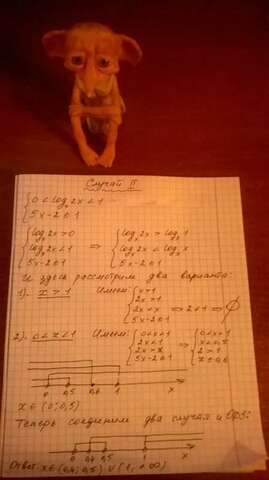 Случай II
{0 < logₓ2x < 1
{5x-2 ≥ 1
{logₓ2x > 0
{logₓ2x < 1
{5x-2 ≥ 1
⇒
{logₓ2x > logₓ1
{logₓ2x < logₓx
{5x-2 ≥ 1
И здесь рассмотрим два варианта:
1). x > 1 Имеем:
{x > 1
{2x > 1
{2x < x
{5x-2 ≥ 1
⇒ 2 < 1 ⇒ ∅
2). 0 < x < 1 Имеем:
{0 < x < 1
{2x < 1
{2x > x
{5x-2 ≥ 1
⇒
{0 < x < 1
{x < 0,5
{2 > 1
{x ≥ 0,6
0 0,5 0,6 1 x
x ∈ (0; 0,5)
Теперь соединим два случая и ОДЗ:
0 0,4 0,5 1 x
Ответ: x ∈ (0,4; 0,5) ∪ (1, +∞)